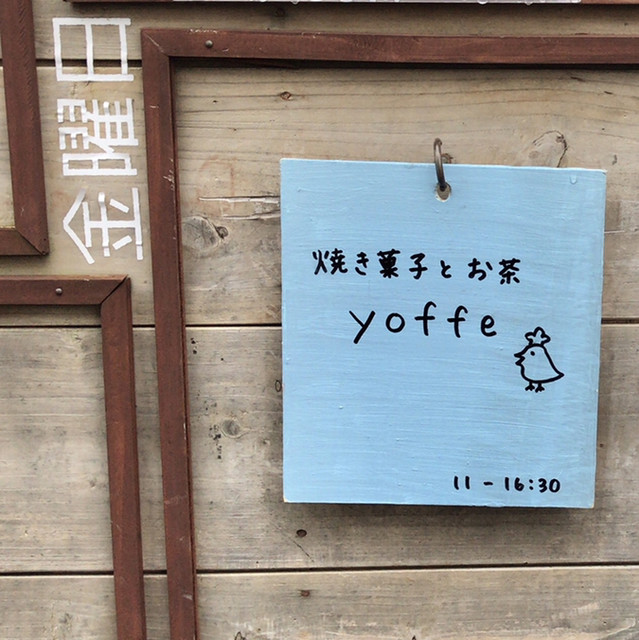 金曜日
焼き菓子とお茶
yoffe
11 - 16:30